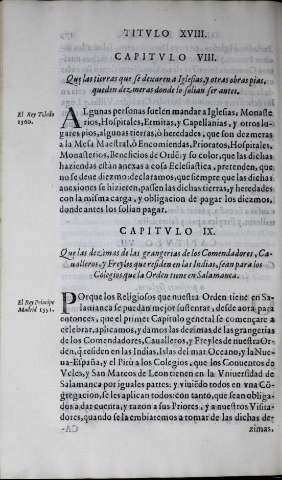 TITVLO XVIII.
CAPITVLO VIII.
Que las tierras que se dexaren a Iglesias, y otras obras pias,
queden dezmeras donde lo solian ser antes.
El Rey Toledo
1560.
ALgunas personas suelen mandar a Iglesias, Monaste
rios, Hospitales, Ermitas, y Capellanias, y otros lu-
gares pios, algunas tierras, ò heredades, que son dezmeras
a la Mesa Maestral, ò Encomiendas, Prioratos, Hospitales,
Monasterios, Beneficios de Ordẽ: y so color, que las dichas
haziendas estàn anexas a cosa Eclesiastica, pretenden, que
no se deue diezmo: declaramos, que siempre que las dichas
anexiones se hizieren, passen las dichas tierras, y heredades
con la misma carga, y obligacion de pagar los diezmos,
donde antes los solian pagar.
CAPITVLO IX.
Que las dezimas de las grangerias de los Comendadores, Ca-
ualleros, y Freyles que residen en las Indias, sean para los
Colegios que la Orden tiene en Salamanca.
El Rey Principe
Madrid 1551.
POrque los Religiosos que nuestra Orden tiene en Sa-
lamanca se puedan mejor sustentar, desde aora para
entonces, que el primer Capitulo general se començare a
celebrar, aplicamos, y damos las dezimas de las grangerias
de los Comendadores, Caualleros, y Freyles de nuestra Or-
den, q̃ residen en las Indias, Islas del mar Oceano, y la Nue-
ua-España, y el Pirù a los Colegios, que los Conuentos de
Veles, y San Marcos de Leon tienen en la Vniuersidad de
Salamanca por iguales partes: y viuiẽdo todos en vna Cõ-
gregacion, se les aplican todos: con tanto, que sean obliga-
dos a dar cuenta, y razon a sus Priores, y a nuestros Visita-
dores, quando se la embiaremos a tomar de las dichas de-
CA-
zimas.